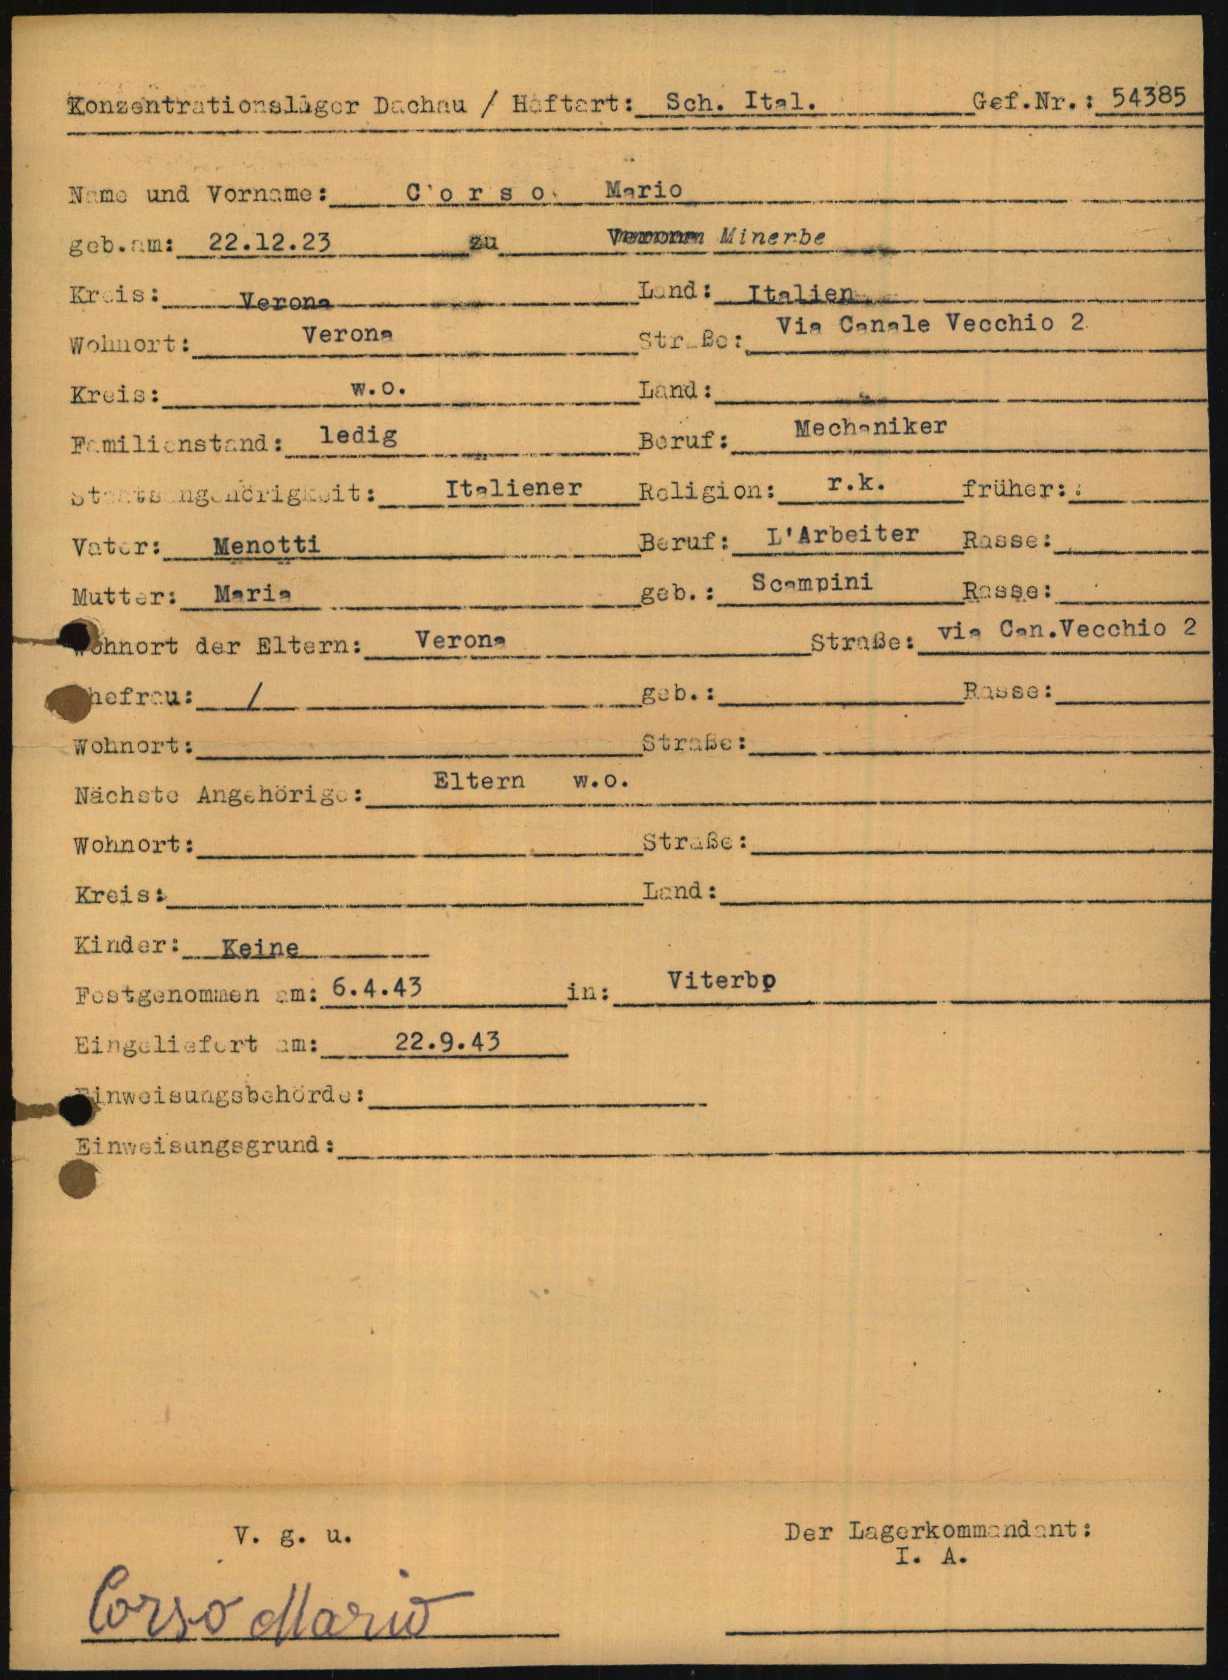 Konzentrationslager Dachau / Haftart: Sch. Ital. Gef.Nr.: 54385
Name und Vorname: C o r s o Mario
geb.am: 22.12.23 zu Verona Minerbe
Kreis: Verona Land: Italien
Wohnort: Verona Straße: Via Canale Vecchio 2
Kreis: w.o. Land:
Familienstand: ledig Beruf: Mechaniker
Staatsangehörigkeit: Italiener Religion: r.k. früher:
Vater: Menotti Beruf: L'Arbeiter Rasse:
Mutter: Maria geb.: Scampini Rasse:
Wohnort der Eltern: Verona Straße: via Can.Vecchio 2
Ehefrau: / geb.: Rasse:
Wohnort: Straße:
Nächste Angehörige: Eltern w.o.
Wohnort: Straße:
Kreis: Land:
Kinder: Keine
Festgenommen am: 6.4.43 in: Viterbo
Eingeliefert am: 22.9.43
Einweisungsbehörde:
Einweisungsgrund:
V. g. u. Der Lagerkommandant:
I. A.
Corso Mario